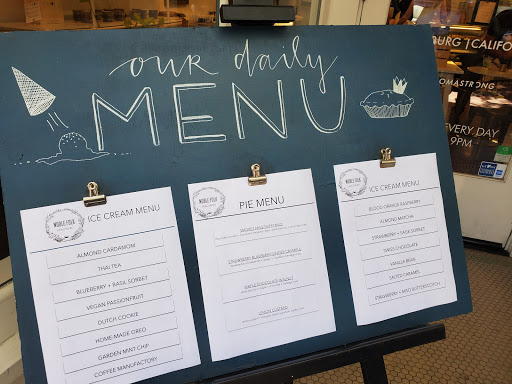 our daily
MENU
NOBLE FOLK
ICE CREAM MENU
ALMOND CARDAMOM
THAI TEA
BLUEBERRY + BASIL SORBET
VEGAN PASSIONFRUIT
DUTCH COOKIE
HOME-MADE OREO
GARDEN MINT CHIP
COFFEE MANUFACTORY
NOBLE FOLK
PIE MENU
NOBLE FOLK
ICE CREAM MENU
BLOOD ORANGE RASPBERRY
ALMOND MATCHA
STRAWBERRY + SAGE SORBET
SWISS CHOCOLATE
VANILLA BEAN
SALTED CARAMEL
STRAWBERRY + MISO BUTTERSCOTCH
BURG | CALIFO
OMASTRONG
EVERY DAY
9PM